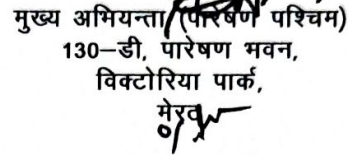 मुख्य अभियन्ता (पारेषण पश्चिम)
130–डी, पारेषण भवन,
विक्टोरिया पार्क,
मेरठ